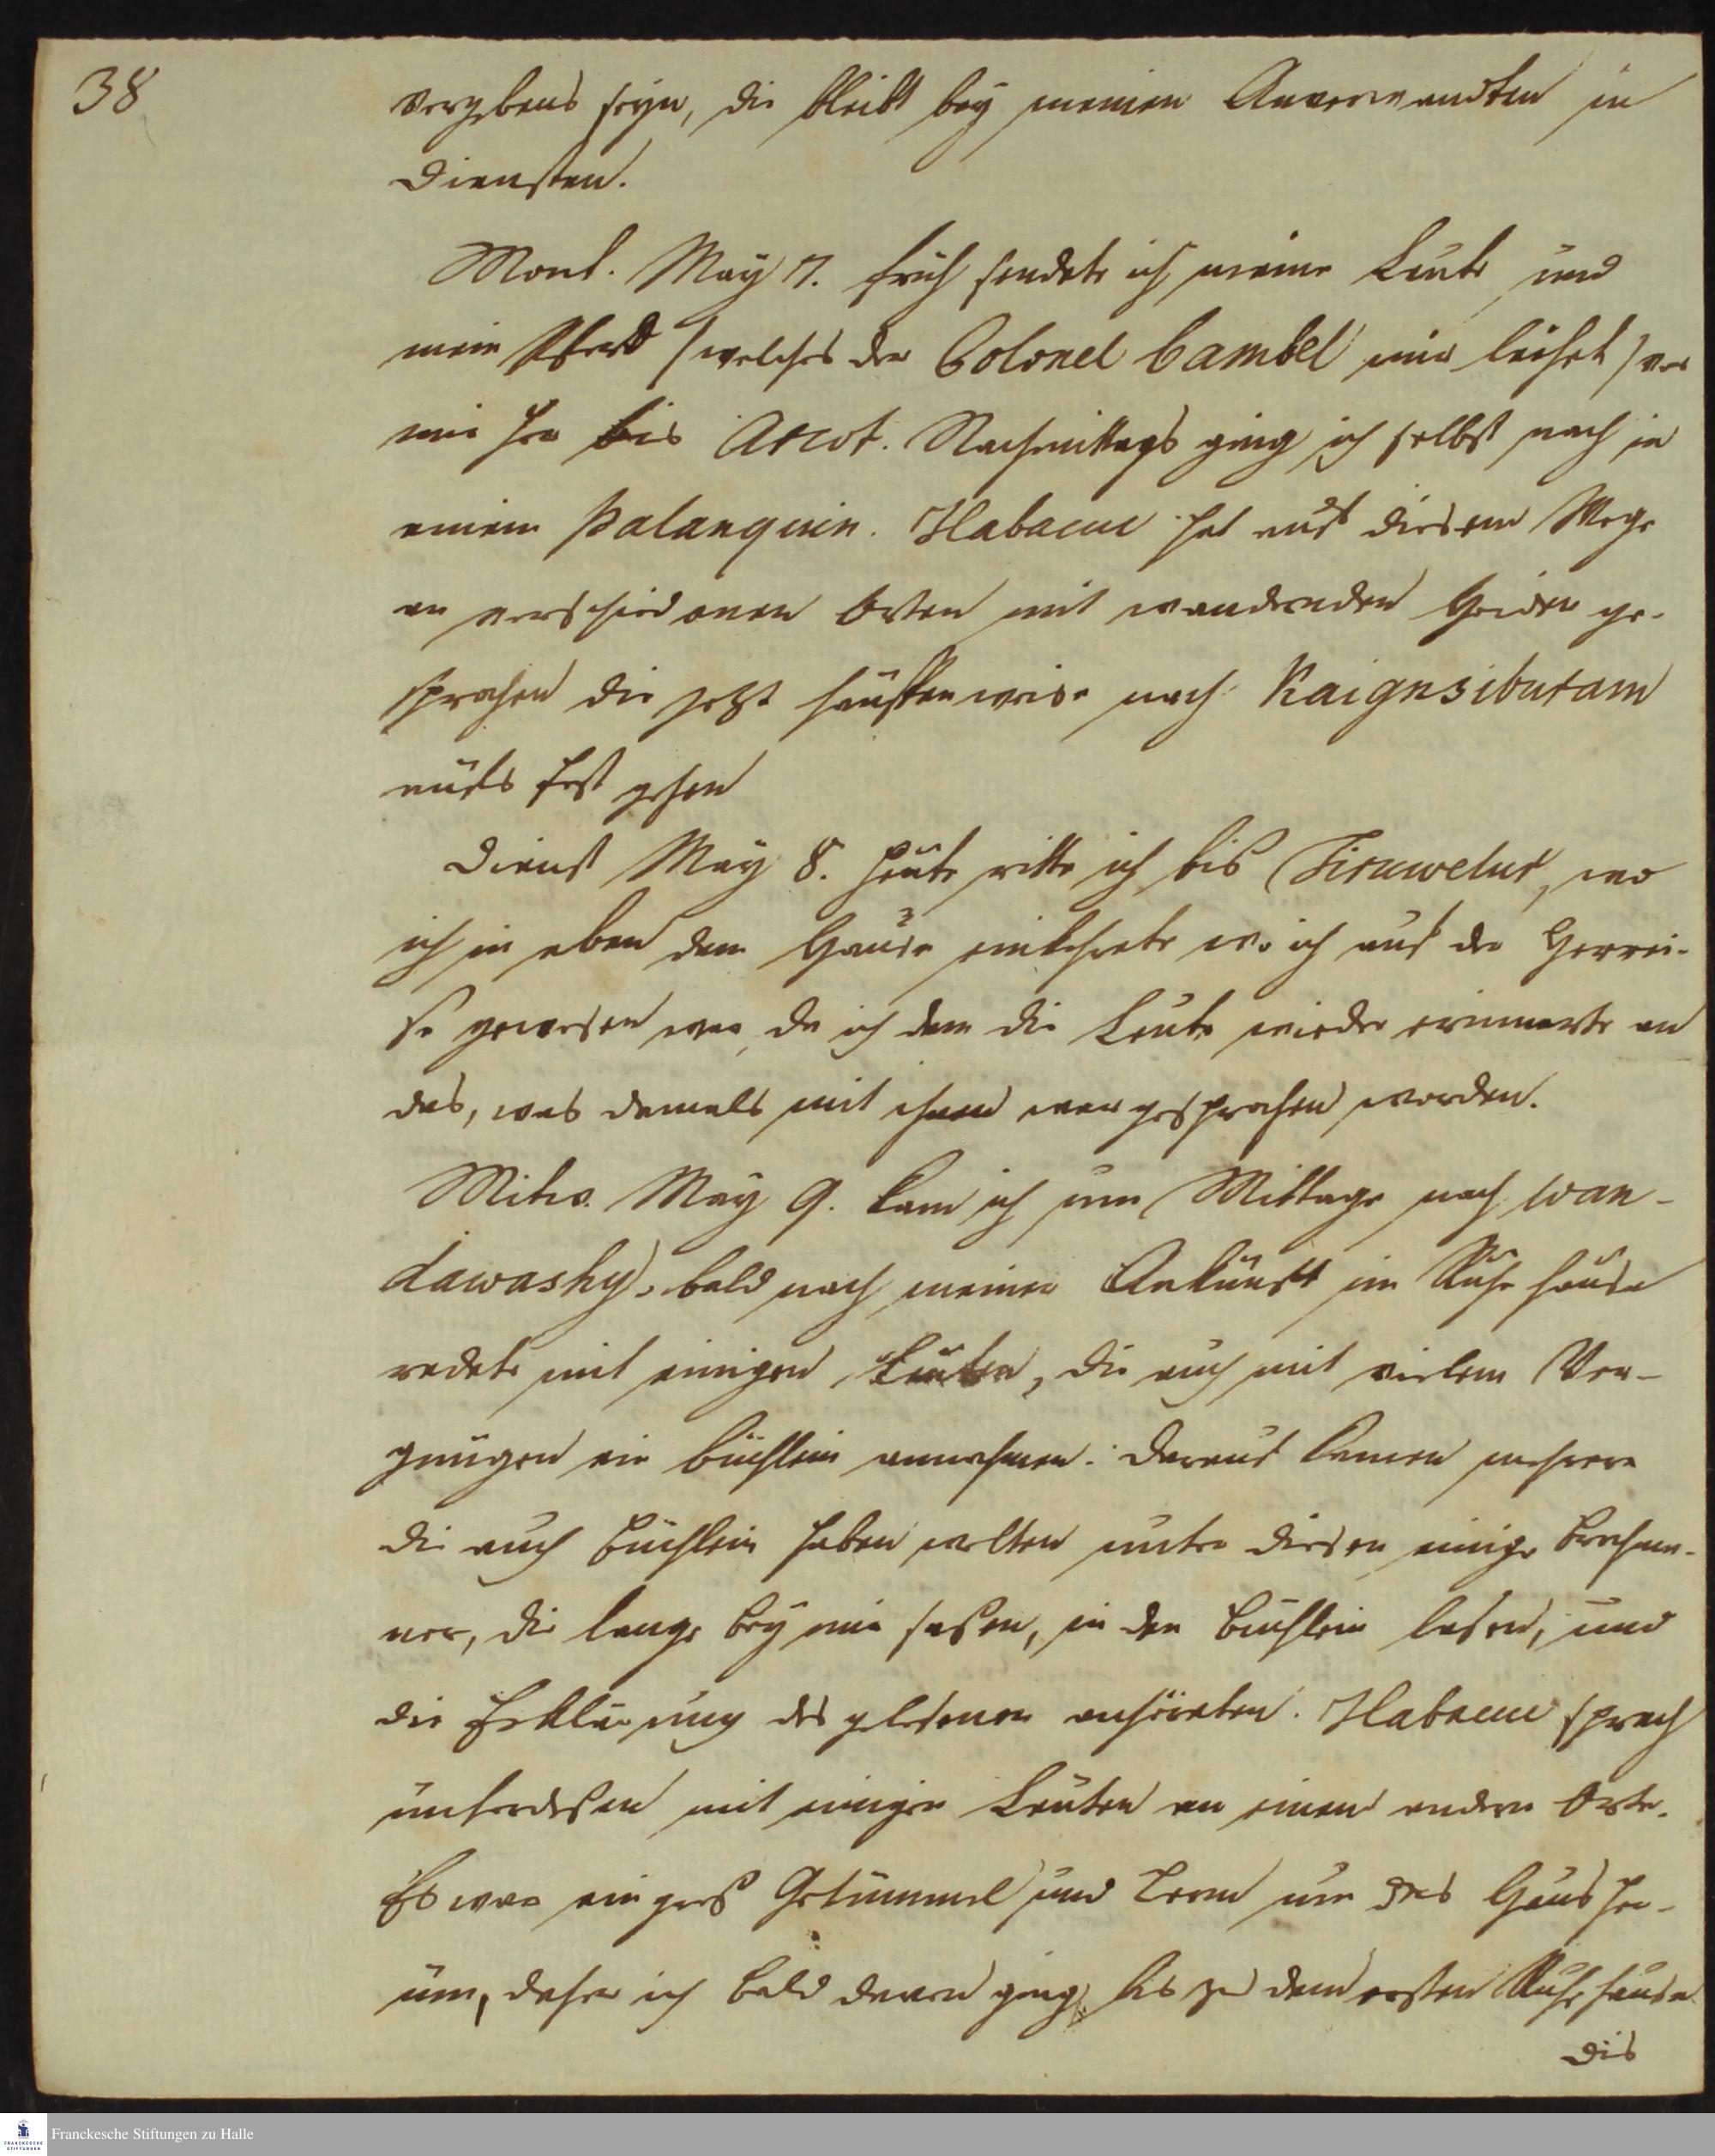 38
vergebens seyn, die bleibt bey meinen Anverwandten in
Diensten.
Mont. May 7. früh sendete ich meine Leute und
mein Pferd (welches der Colonel Cambel mir leihet) vor
mir her bis Arcot. Nachmittags ging ich selbst nach in
einem Palanquin. Habacuc hat auf diesem Wege
an verschiedenen Orten mit wandernden Heiden ge-
sprochen die jetzt hauffenweise nach Kaignsiburam
aufs Fest gehen
Dienst May 8. Heute ritte ich bis Tiruwelur, wo
ich in eben dem Hause einkehrete wo ich auf der Herrei-
se gewesen war, da ich denn die Leute wieder erinnerte an
das, was damals mit ihnen war gesprochen worden.
Mitw. May 9. kam ich um Mittage nach Wan-
dawashy, bald nach meiner Ankunft im Ruhehause
redete mit einigen Leuten, die auch mit vielem Ver-
gnügen ein Büchlein annahmen. Darauf kamen mehrere
die auch Büchlein haben wolten unter diesen einige Brahma-
ner, die lange bey mir saßen, in den Büchlein lasen, und
die Erklärung des gelesenen anhöreten. Habacuc sprach
unterdeßen mit einigen Leuten an einem andern Orte.
Es war ein groß Getümmel und Lerm um das Haus her-
um, daher ich bald davon ging bis zu dem ersten Ruhehause
dis
Franckesche Stiftungen zu Halle
FRANCKESCHE
STIFTUNGEN